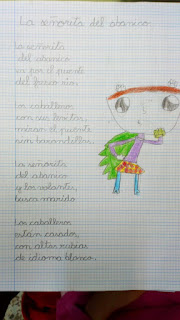 La señorita del abanico
La señorita
del abanico
va por el puente
del fresco río.
Los caballeros
con sus levitas,
miran el puente
sin barandillas.
La señorita
del abanico
y los volantes,
busca marido.
Los caballeros
están casados,
con altas rubias
de idioma blanco.